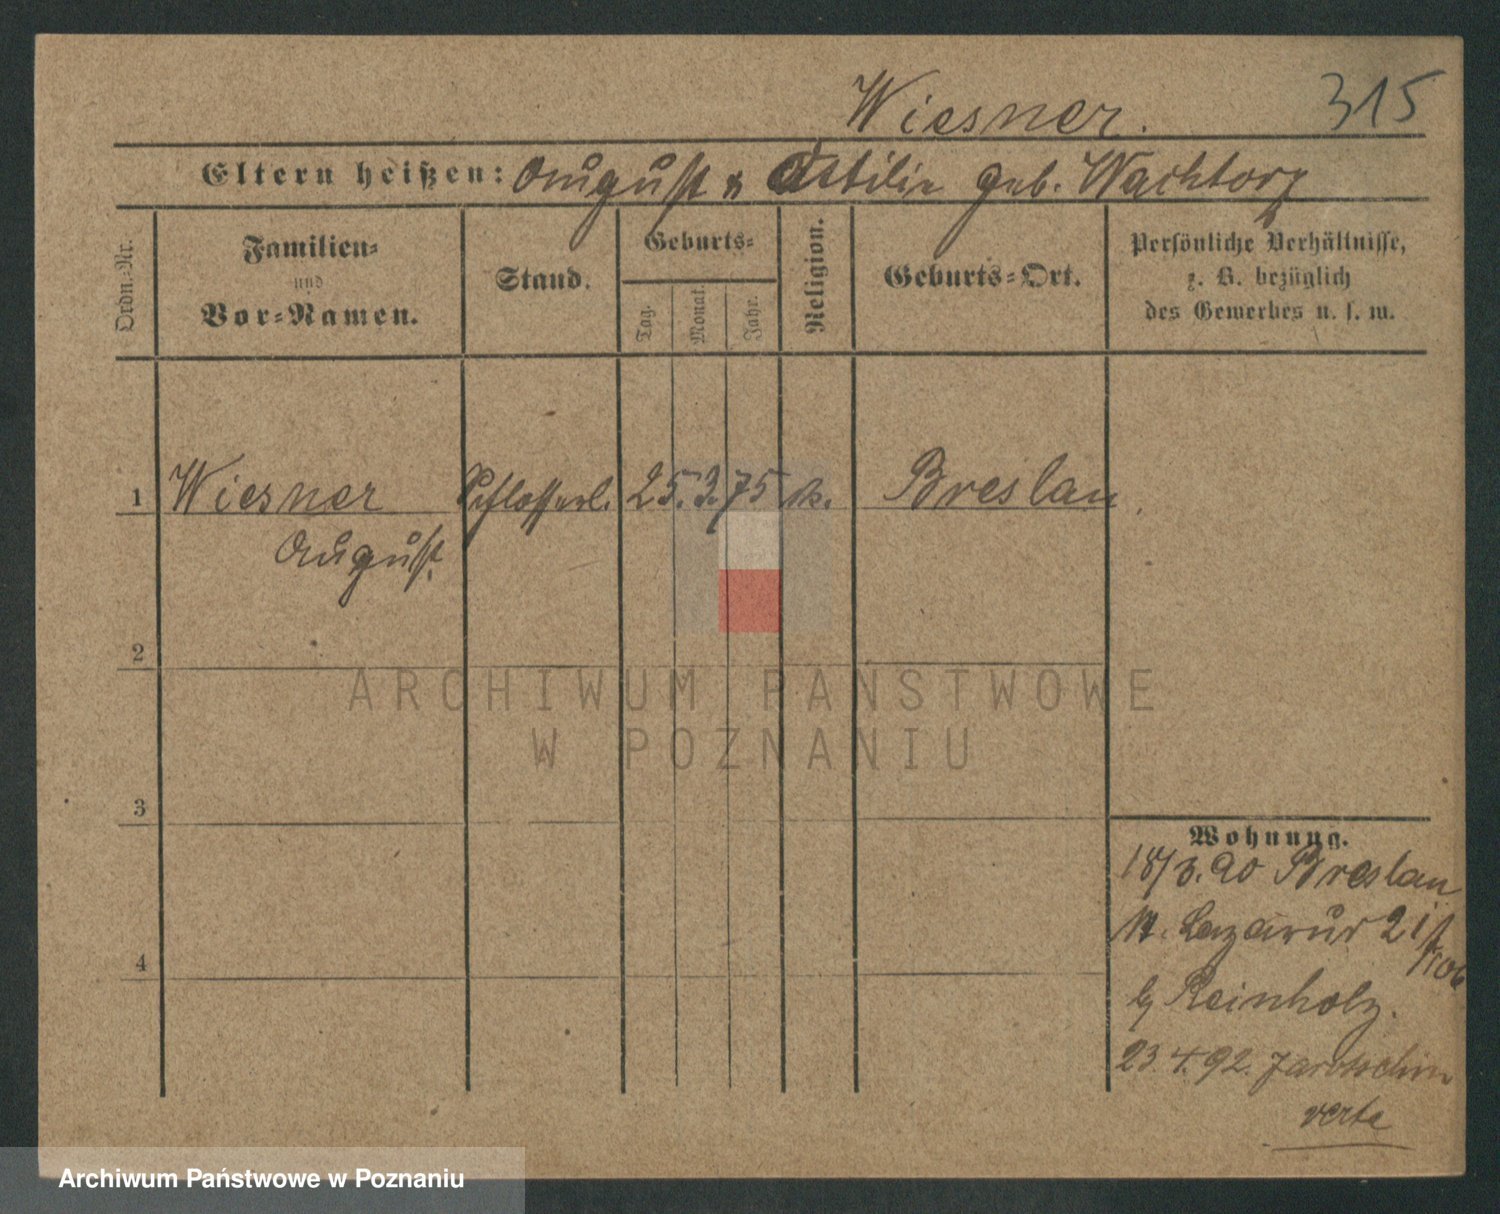 Wiesner. 315
Eltern heißen: August & Ottilie geb. Wachtorz
Ordn.-Nr.
Familien-
und
Vor-Namen.
Stand.
Geburts-
Tag.
Monat.
Jahr.
Religion.
Geburts-Ort.
Persönliche Verhältnisse,
z. B. bezüglich
des Gewerbes u. s. w.
1 Wiesner Schlosserl. 25. 3. 75 k. Breslau.
August.
2
ARCHIWUM PAŃSTWOWE
W POZNANIU
3
Wohnung.
18/3. 90 Breslau
St. Lazarus 21
b/ Reinholz.
4
23 4. 92. Jarotschin
verte
Archiwum Państwowe w Poznaniu